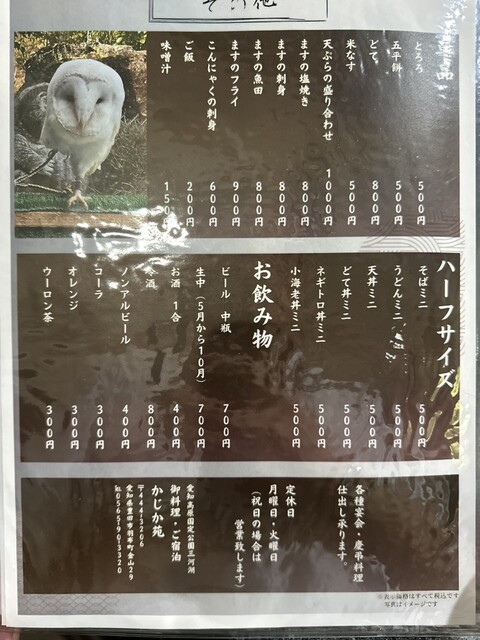 その他
一品
とろろ 500円
五平餅 500円
どて 800円
米なす 500円
天ぷらの盛り合わせ 1000円
ますの塩焼き 800円
ますの刺身 800円
ますの魚田 800円
ますのフライ 900円
こんにゃくの刺身 600円
ご飯 200円
味噌汁 150円
ハーフサイズ
そばミニ 500円
うどんミニ 500円
天丼ミニ 500円
どて丼ミニ 500円
ネギトロ丼ミニ 500円
小海老丼ミニ 500円
お飲み物
ビール 中瓶 700円
生中(5月から10月) 700円
お酒 1合 400円
冷酒 800円
ノンアルビール 400円
コーラ 300円
オレンジ 300円
ウーロン茶 300円
各種宴会・慶弔料理
仕出し承ります。
定休日
月曜日・火曜日
(祝日の場合は
営業致します)
愛知高原国定公園三河湖
御料理・ご宿泊
かじか苑
〒444-3206
愛知県豊田市羽布町金山29
℡0565-90-3320
※表示価格はすべて税込です
写真はイメージです